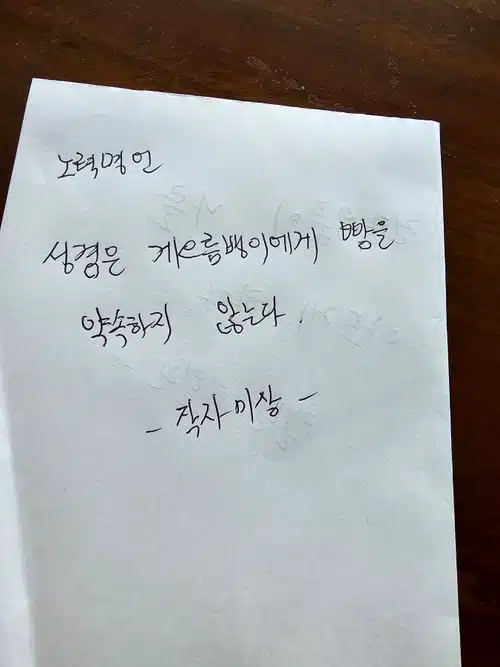 노력명언
성경은 게으름뱅이에게 빵을
약속하지 않는다.
- 작자미상 -